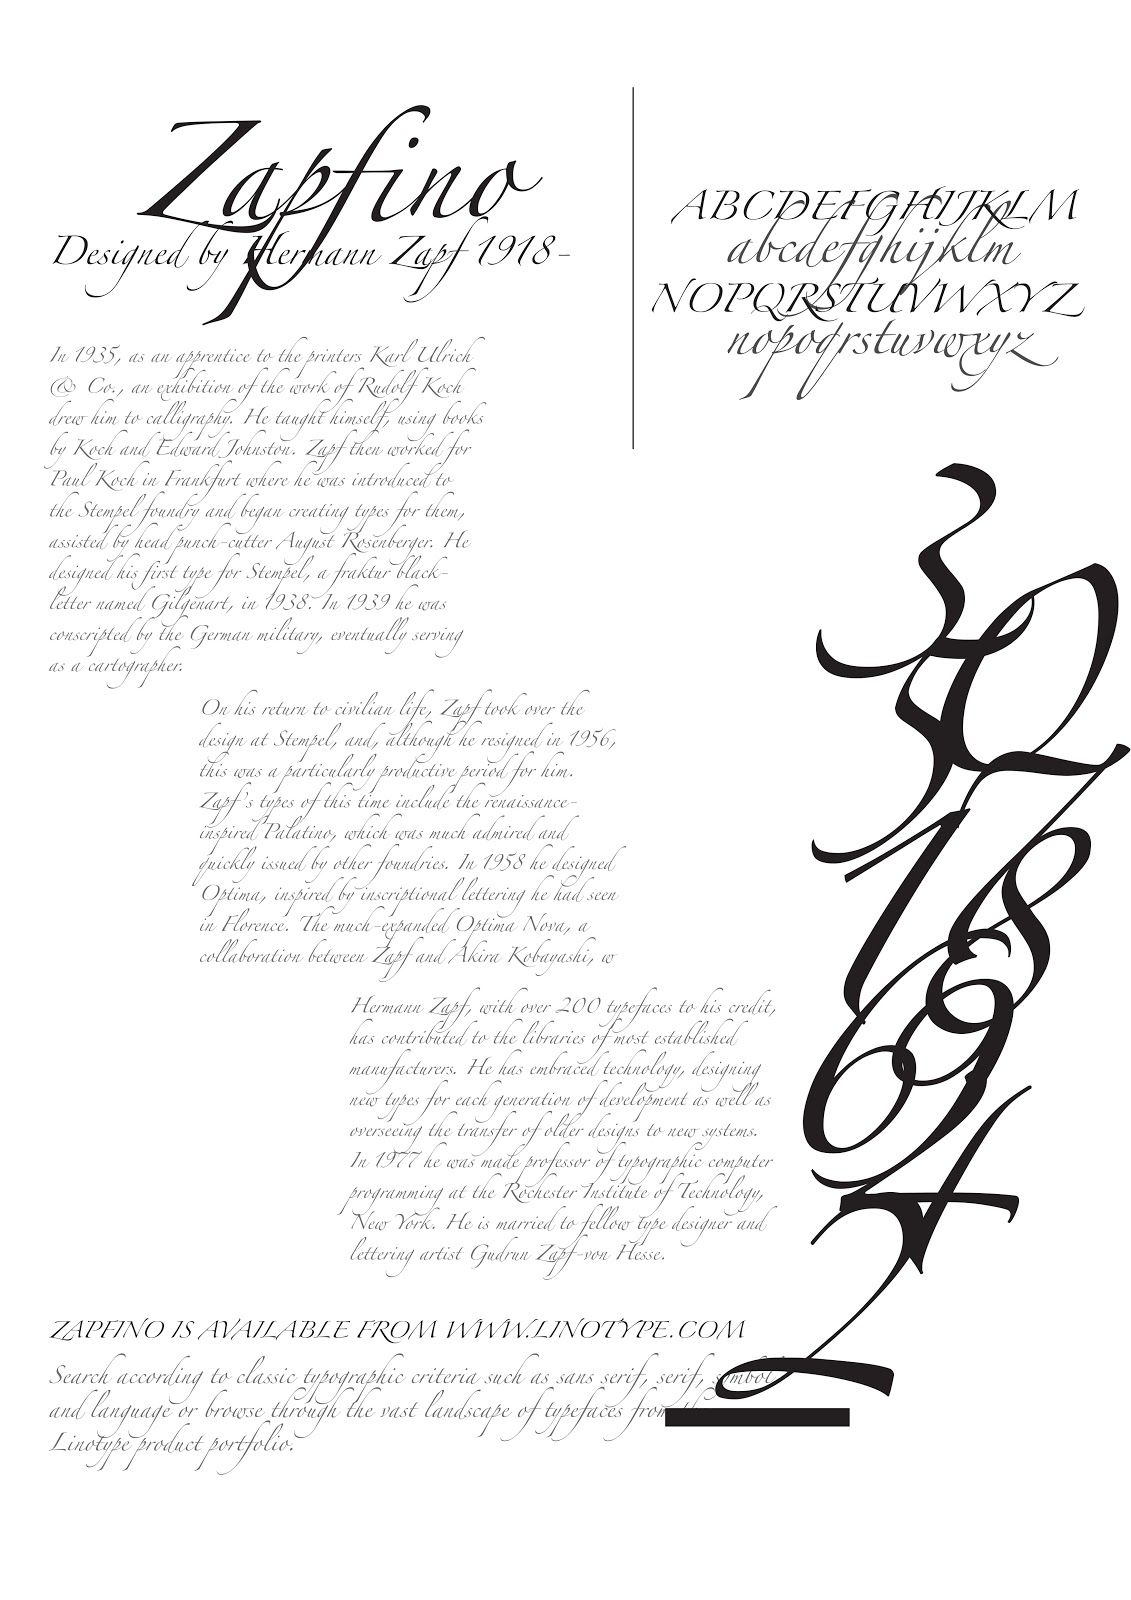 Zapfino
Designed by Hermann Zapf 1918-
ABCDEFGHIJKLM
abcdefghijklm
NOPQRSTUVWXYZ
nopoqrstuvwxyz
In 1935, as an apprentice to the printers Karl Ulrich
& Co., an exhibition of the work of Rudolf Koch
drew him to calligraphy. He taught himself, using books
by Koch and Edward Johnston. Zapf then worked for
Paul Koch in Frankfurt where he was introduced to
the Stempel foundry and began creating types for them,
assisted by head punch-cutter August Rosenberger. He
designed his first type for Stempel, a fraktur black-
letter named Gilgenart, in 1938. In 1939 he was
conscripted by the German military, eventually serving
as a cartographer.
On his return to civilian life, Zapf took over the
design at Stempel, and, although he resigned in 1956,
this was a particularly productive period for him.
Zapf's types of this time include the renaissance-
inspired Palatino, which was much admired and
quickly issued by other foundries. In 1958 he designed
Optima, inspired by inscriptional lettering he had seen
in Florence. The much-expanded Optima Nova, a
collaboration between Zapf and Akira Kobayashi, w
Hermann Zapf, with over 200 typefaces to his credit,
has contributed to the libraries of most established
manufacturers. He has embraced technology, designing
new types for each generation of development as well as
overseeing the transfer of older designs to new systems.
In 1977 he was made professor of typographic computer
programming at the Rochester Institute of Technology,
New York. He is married to fellow type designer and
lettering artist Gudrun Zapf-von Hesse.
3
0
5
7
1
8
6
9
4
2
ZAPFINO IS AVAILABLE FROM WWW.LINOTYPE.COM
Search according to classic typographic criteria such as sans serif, serif, symbol
and language or browse through the vast landscape of typefaces from
Linotype product portfolio.